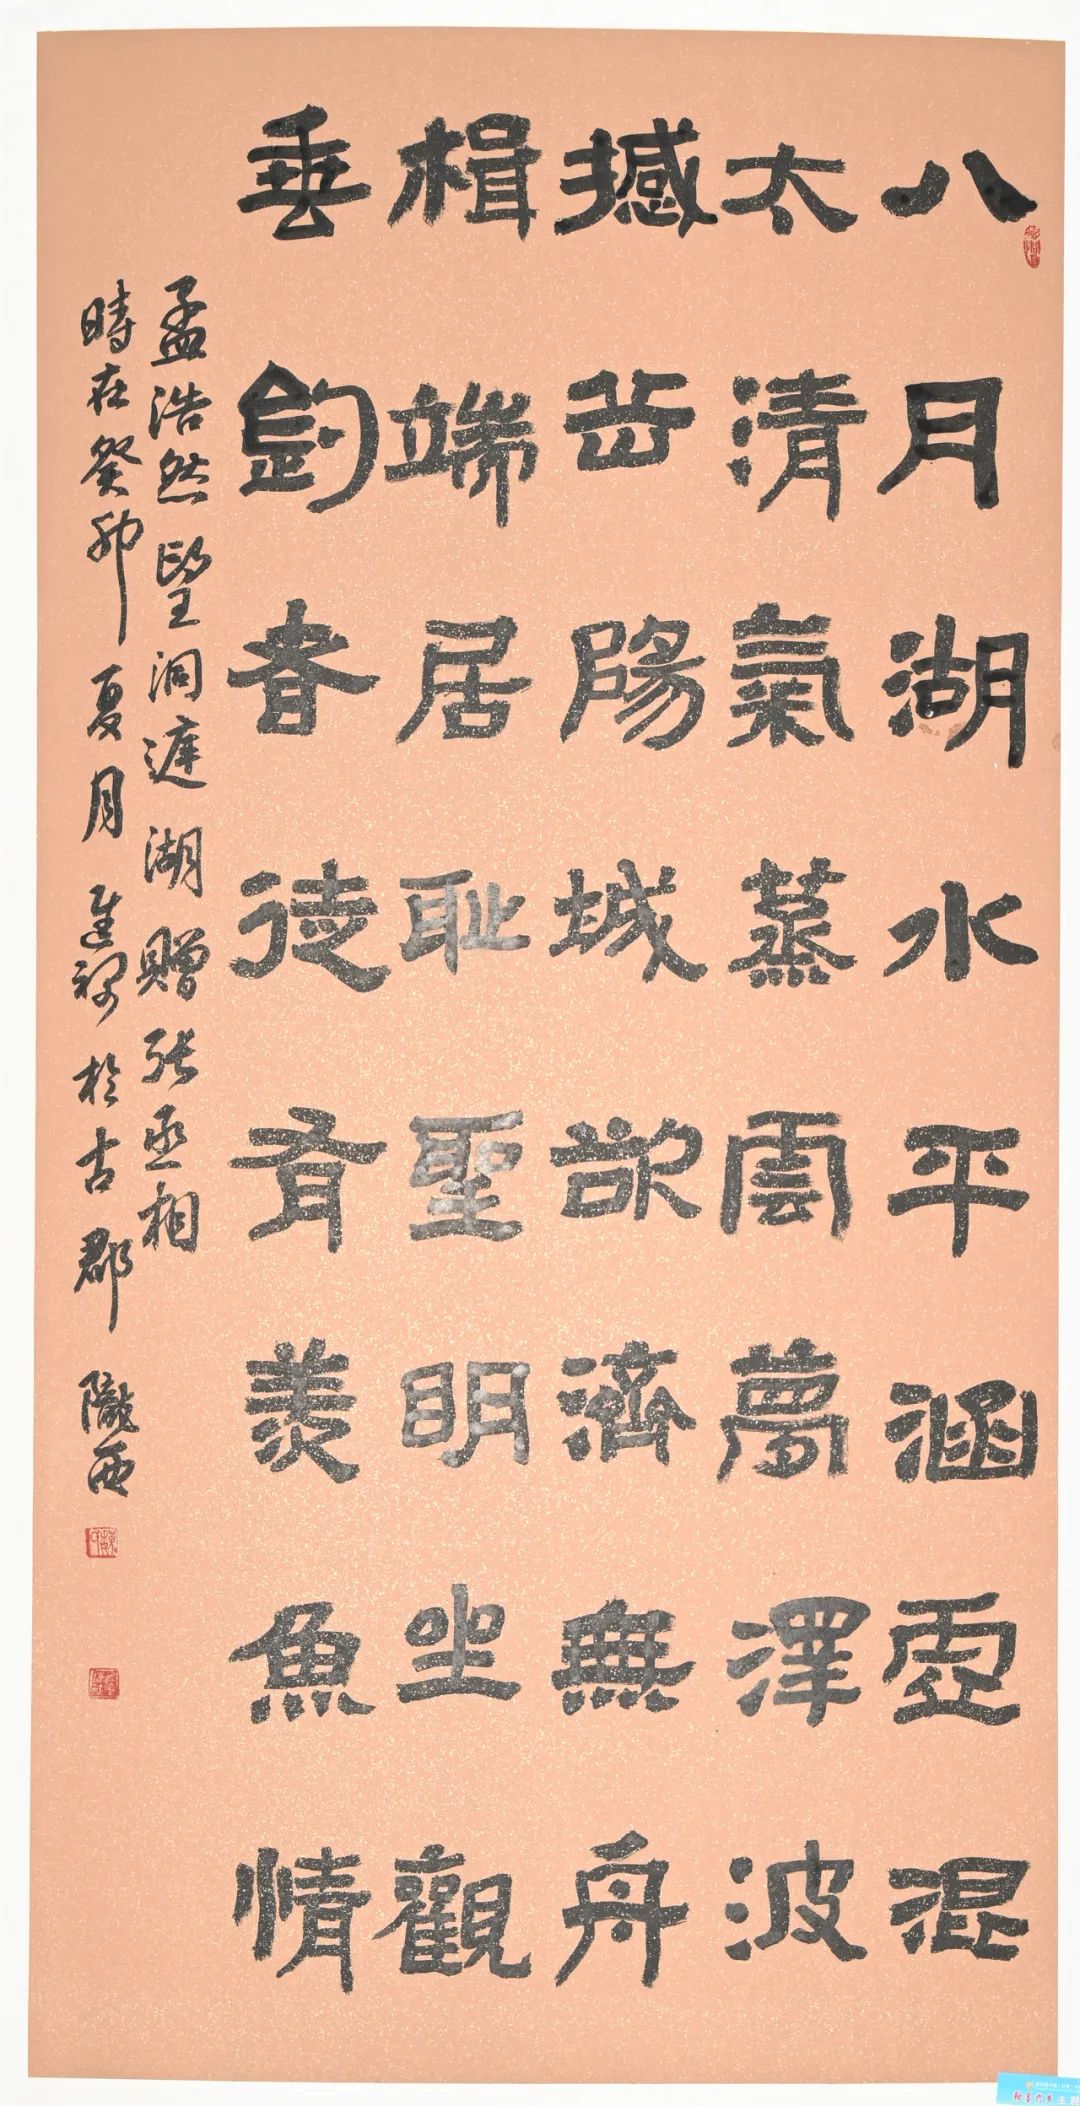 八月湖水平涵虛混
太清氣蒸雲夢澤波
撼岳陽城欲濟無舟
楫端居耻聖明坐觀
垂釣者徒有羨魚情
孟浩然望洞庭湖贈張丞相
時在癸卯夏月進於古郡隴西